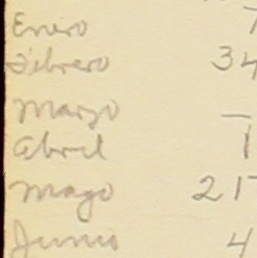 Enero 7
Febrero 34
Marzo —
Abril 1
Mayo 21
Junio 4